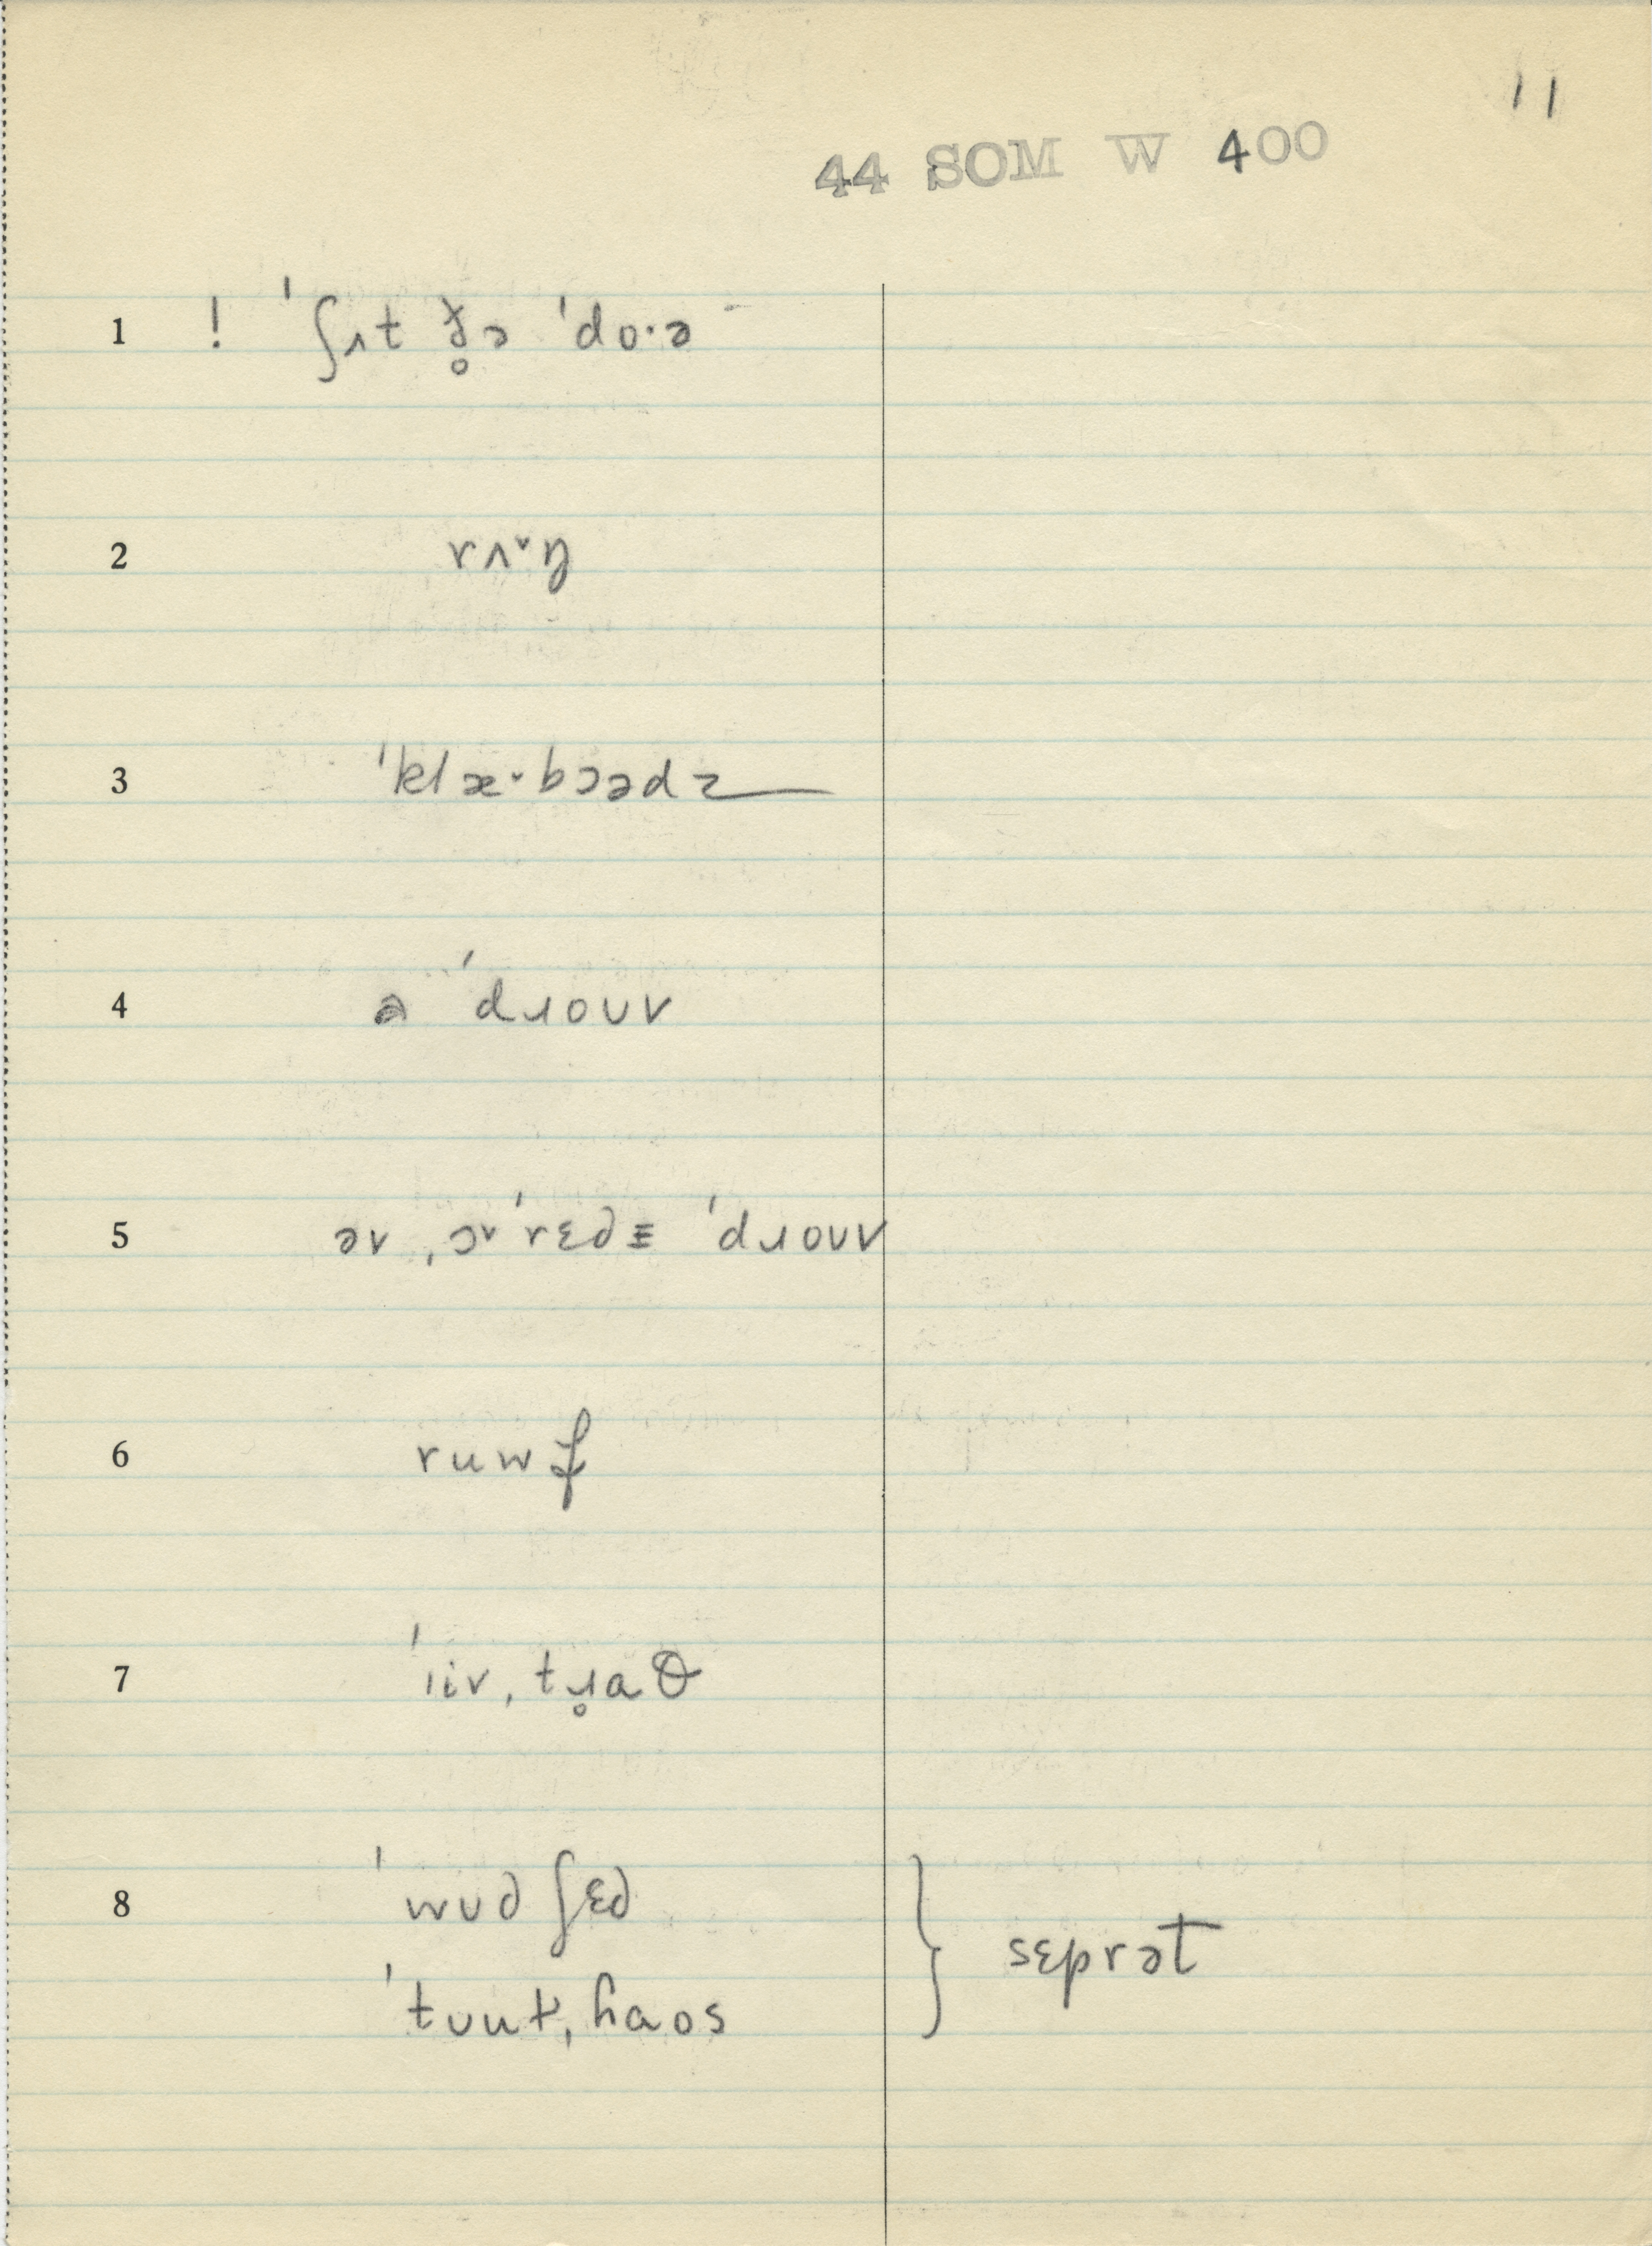 11
44 SOM W 400
1 ! ˈʃʌt ð̥ə ˈdo·ə
2 rʌ˅ŋ
3 ˈklæ˅bɔədz
4 ə ˈdɹoʊv
5 əv ˌɔ˅ˈrɛdɪ ˈdɹoʊv
6 ruwf
7 ˈiivˌtɹ̥aθ
8 ˈwʊdʃɛd } sɛprət
ˈtuutˌhaos